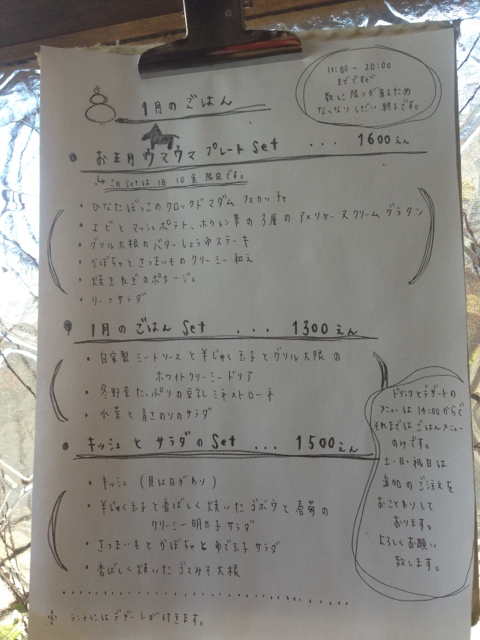 11:00 ~ 20:00
までですが
数に限りがあるため
なくなりしだい終了です。
1月のごはん
お正月ウマウマプレート Set ... 1600えん
このSetは1日10食限定です。
・ひなたぼっこのクロックドマダム フォカッチャ
・エビとマッシュポテト、ホウレン草の3層のアメリケーヌクリームグラタン
・グリル大根のバターしょうゆステーキ
・かぼちゃとさつまいものクリーミー和え
・焼きねぎのポタージュ
・リーフサラダ
1月のごはん Set ... 1300えん
・自家製ミートソースと半じゅく玉子とグリル大根の
ホワイトクリーミードリア
・冬野菜たっぷりの豆乳ミネストローネ
・水菜と青さのりのサラダ
キッシュとサラダのSet ... 1500えん
・キッシュ (具は日がわり)
・半じゅく玉子と香ばしく焼いたゴボウと春菊の
クリーミー明太子サラダ
・さつまいもとかぼちゃとゆで玉子サラダ
・香ばしく焼いたゴマみそ大根
※ ランチにはデザートが付きます。
ドリンクとデザートの
メニューは14:00からで
それまではごはんメニュー
のみです。
土・日・祝日は
追加のご注文を
おことわりして
おります。
よろしくお願い
致します。